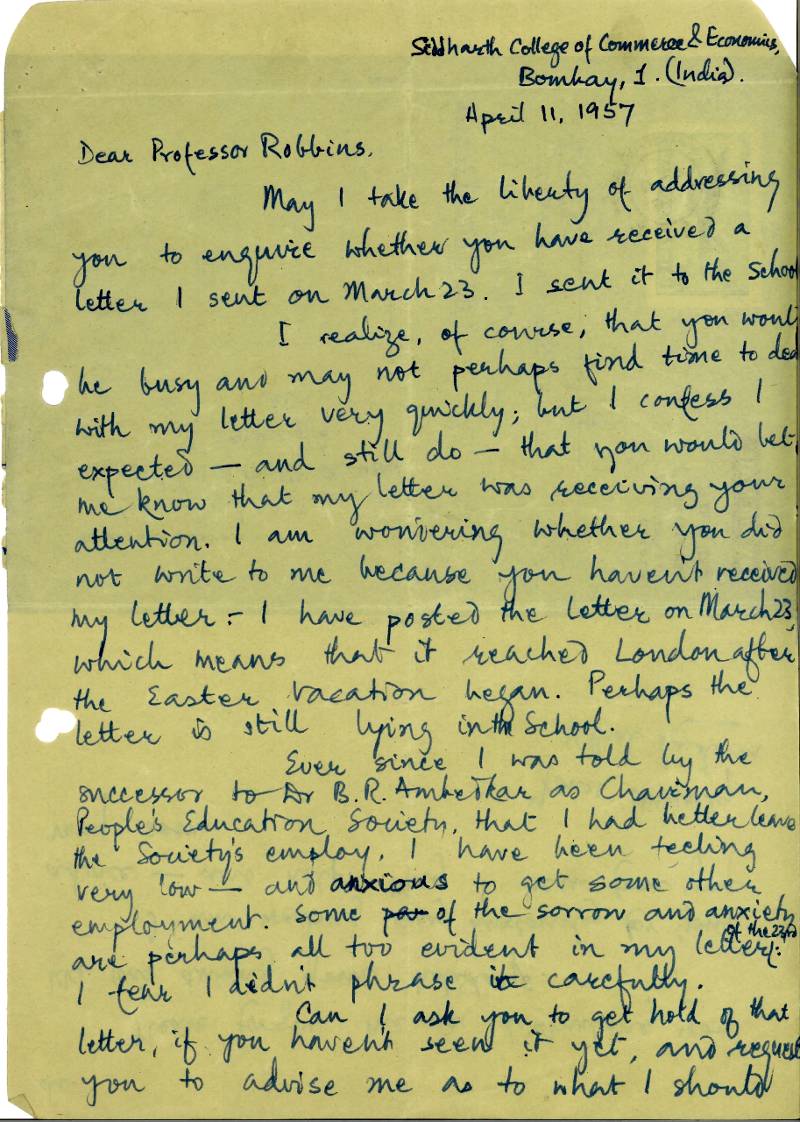 Siddharth College of Commerce & Economics,
Bombay, 1. (India).
April 11, 1957
Dear Professor Robbins,
May I take the liberty of addressing
you to enquire whether you have received a
letter I sent on March 23. I sent it to the School
I realize, of course, that you woul
be busy and may not perhaps find time to dea
with my letter very quickly; but I confess I
expected — and still do — that you would let
me know that my letter was receiving your
attention. I am wondering whether you did
not write to me because you haven't received
my letter. – I have posted the letter on March 23,
which means that it reached London after
the Easter vacation began. Perhaps the
letter is still lying in the School.
Ever since I was told by the
successor to Dr B.R. Ambedkar as Chairman,
People's Education Society, that I had better leave
the Society's employ, I have been feeling
very low — and anxious to get some other
employment. Some of the sorrow and anxiety
are perhaps all too evident in my letter of the 23rd:
I fear I didn't phrase it carefully.
Can I ask you to get hold of that
letter, if you haven't seen it yet, and request
you to advise me as to what I should